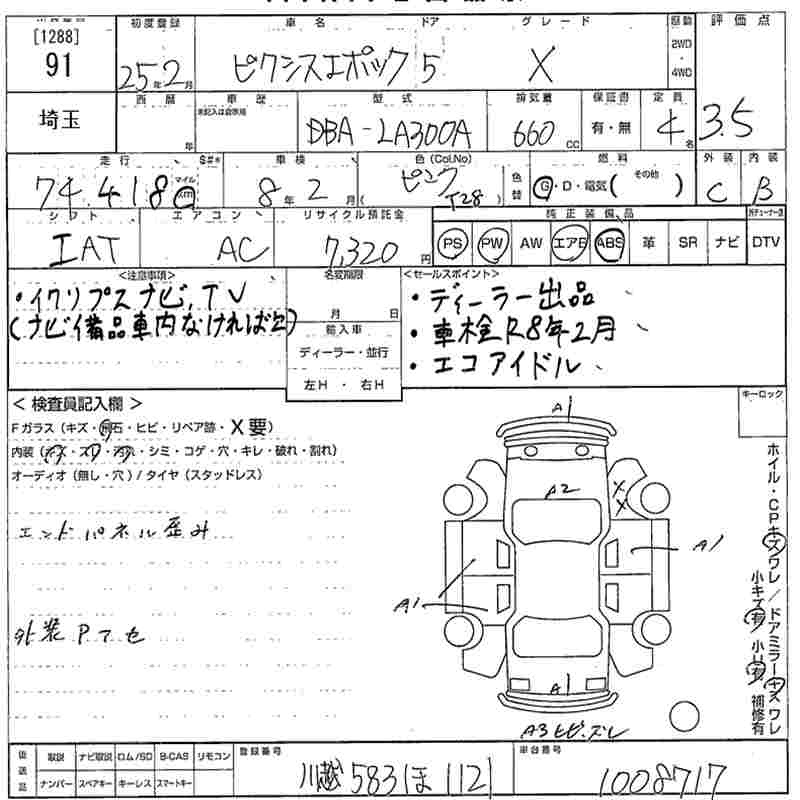 [1288]
91
埼玉
初度登録
25年2月
西暦
年
車名
ドア
グレード
ピクシスエポック 5 X
駆動
2WD
4WD
評価点
3.5
車歴
未記入は自家用
型式
DBA-LA300A
排気量
660 CC
保証書
有・無
定員
4名
走行
74,418 マイル km
S#*
車検
8年2月
色(Col.No)
(ピンク T28)
色替
燃料
G・D・電気( その他 )
外装
C
内装
B
シフト
IAT
エアコン
AC
リサイクル預託金
7,320円
純正装備品
PS PW AW エアB ABS 革 SR ナビ DTV
<注意事項>
・イクリプスナビ、TV
(ナビ備品車内なければ欠)
名変期限
月 日
輸入車
ディーラー・並行
左H・右H
<セールスポイント>
・ディーラー出品
・車検R8年2月
・エコアイドル
<検査員記入欄>
Fガラス(キズ・飛石・ヒビ・リペア跡・X要)
内装(キズ・スリ・汚れ・シミ・コゲ・穴・キレ・破れ・割れ)
オーディオ(無し・穴)/タイヤ(スタッドレス)
エンドパネル歪み
外装Pアセ
キーロック
A1
A2
X
X
A1
A1
A1
A3ヒビ.ズレ
ホイル・CPキズワレ/ドアミラーキズワレ
小キズ有 小凹有 補修有
後送品
取説 ナビ取説 ロム/SD B-CAS リモコン
ナンバー スペアキー キーレス スマートキー
登録番号
川越 583 ほ 112
車台番号
1008717